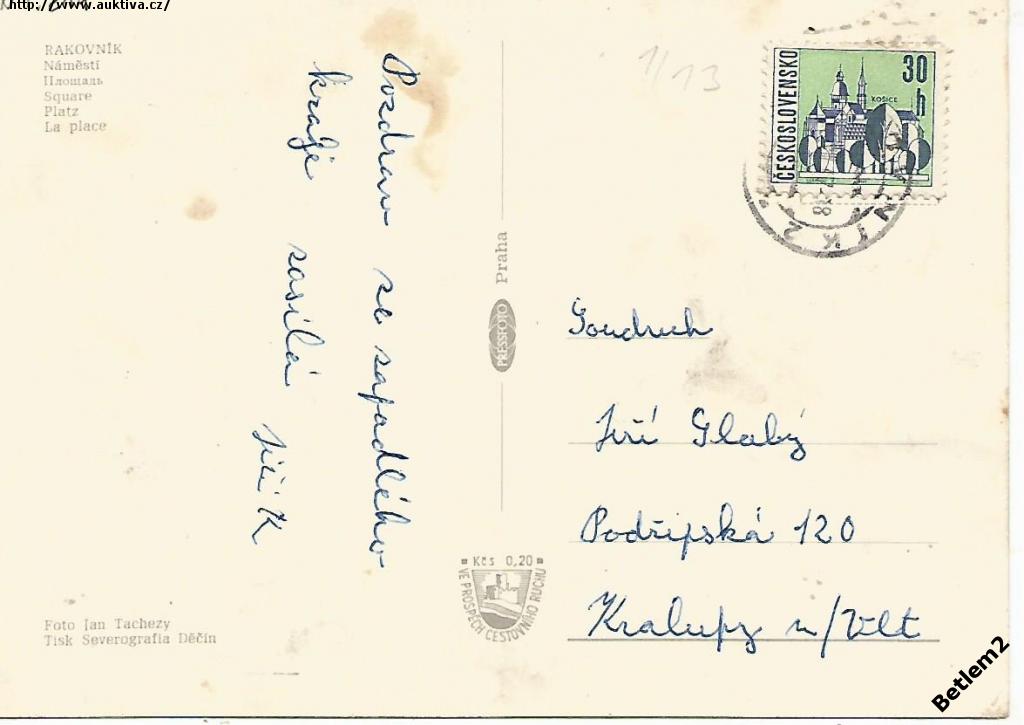 http://www.auktiva.cz/
RAKOVNÍK
Náměstí
Площадь
Square
Platz
La place
1/13
Pozdrav ze zapadlého
kraje zasílá
Jiřík
ČESKOSLOVENSKO
30
h
KOŠICE
Praha
PRESSFOTO
Soudruh
Jiří Slabý
Podřipská 120
Kralupy n/Vlt
Kčs 0,20
VE PROSPĚCH CESTOVNÍHO RUCHU
Foto Jan Tachezy
Tisk Severografia Děčín
Betlem2